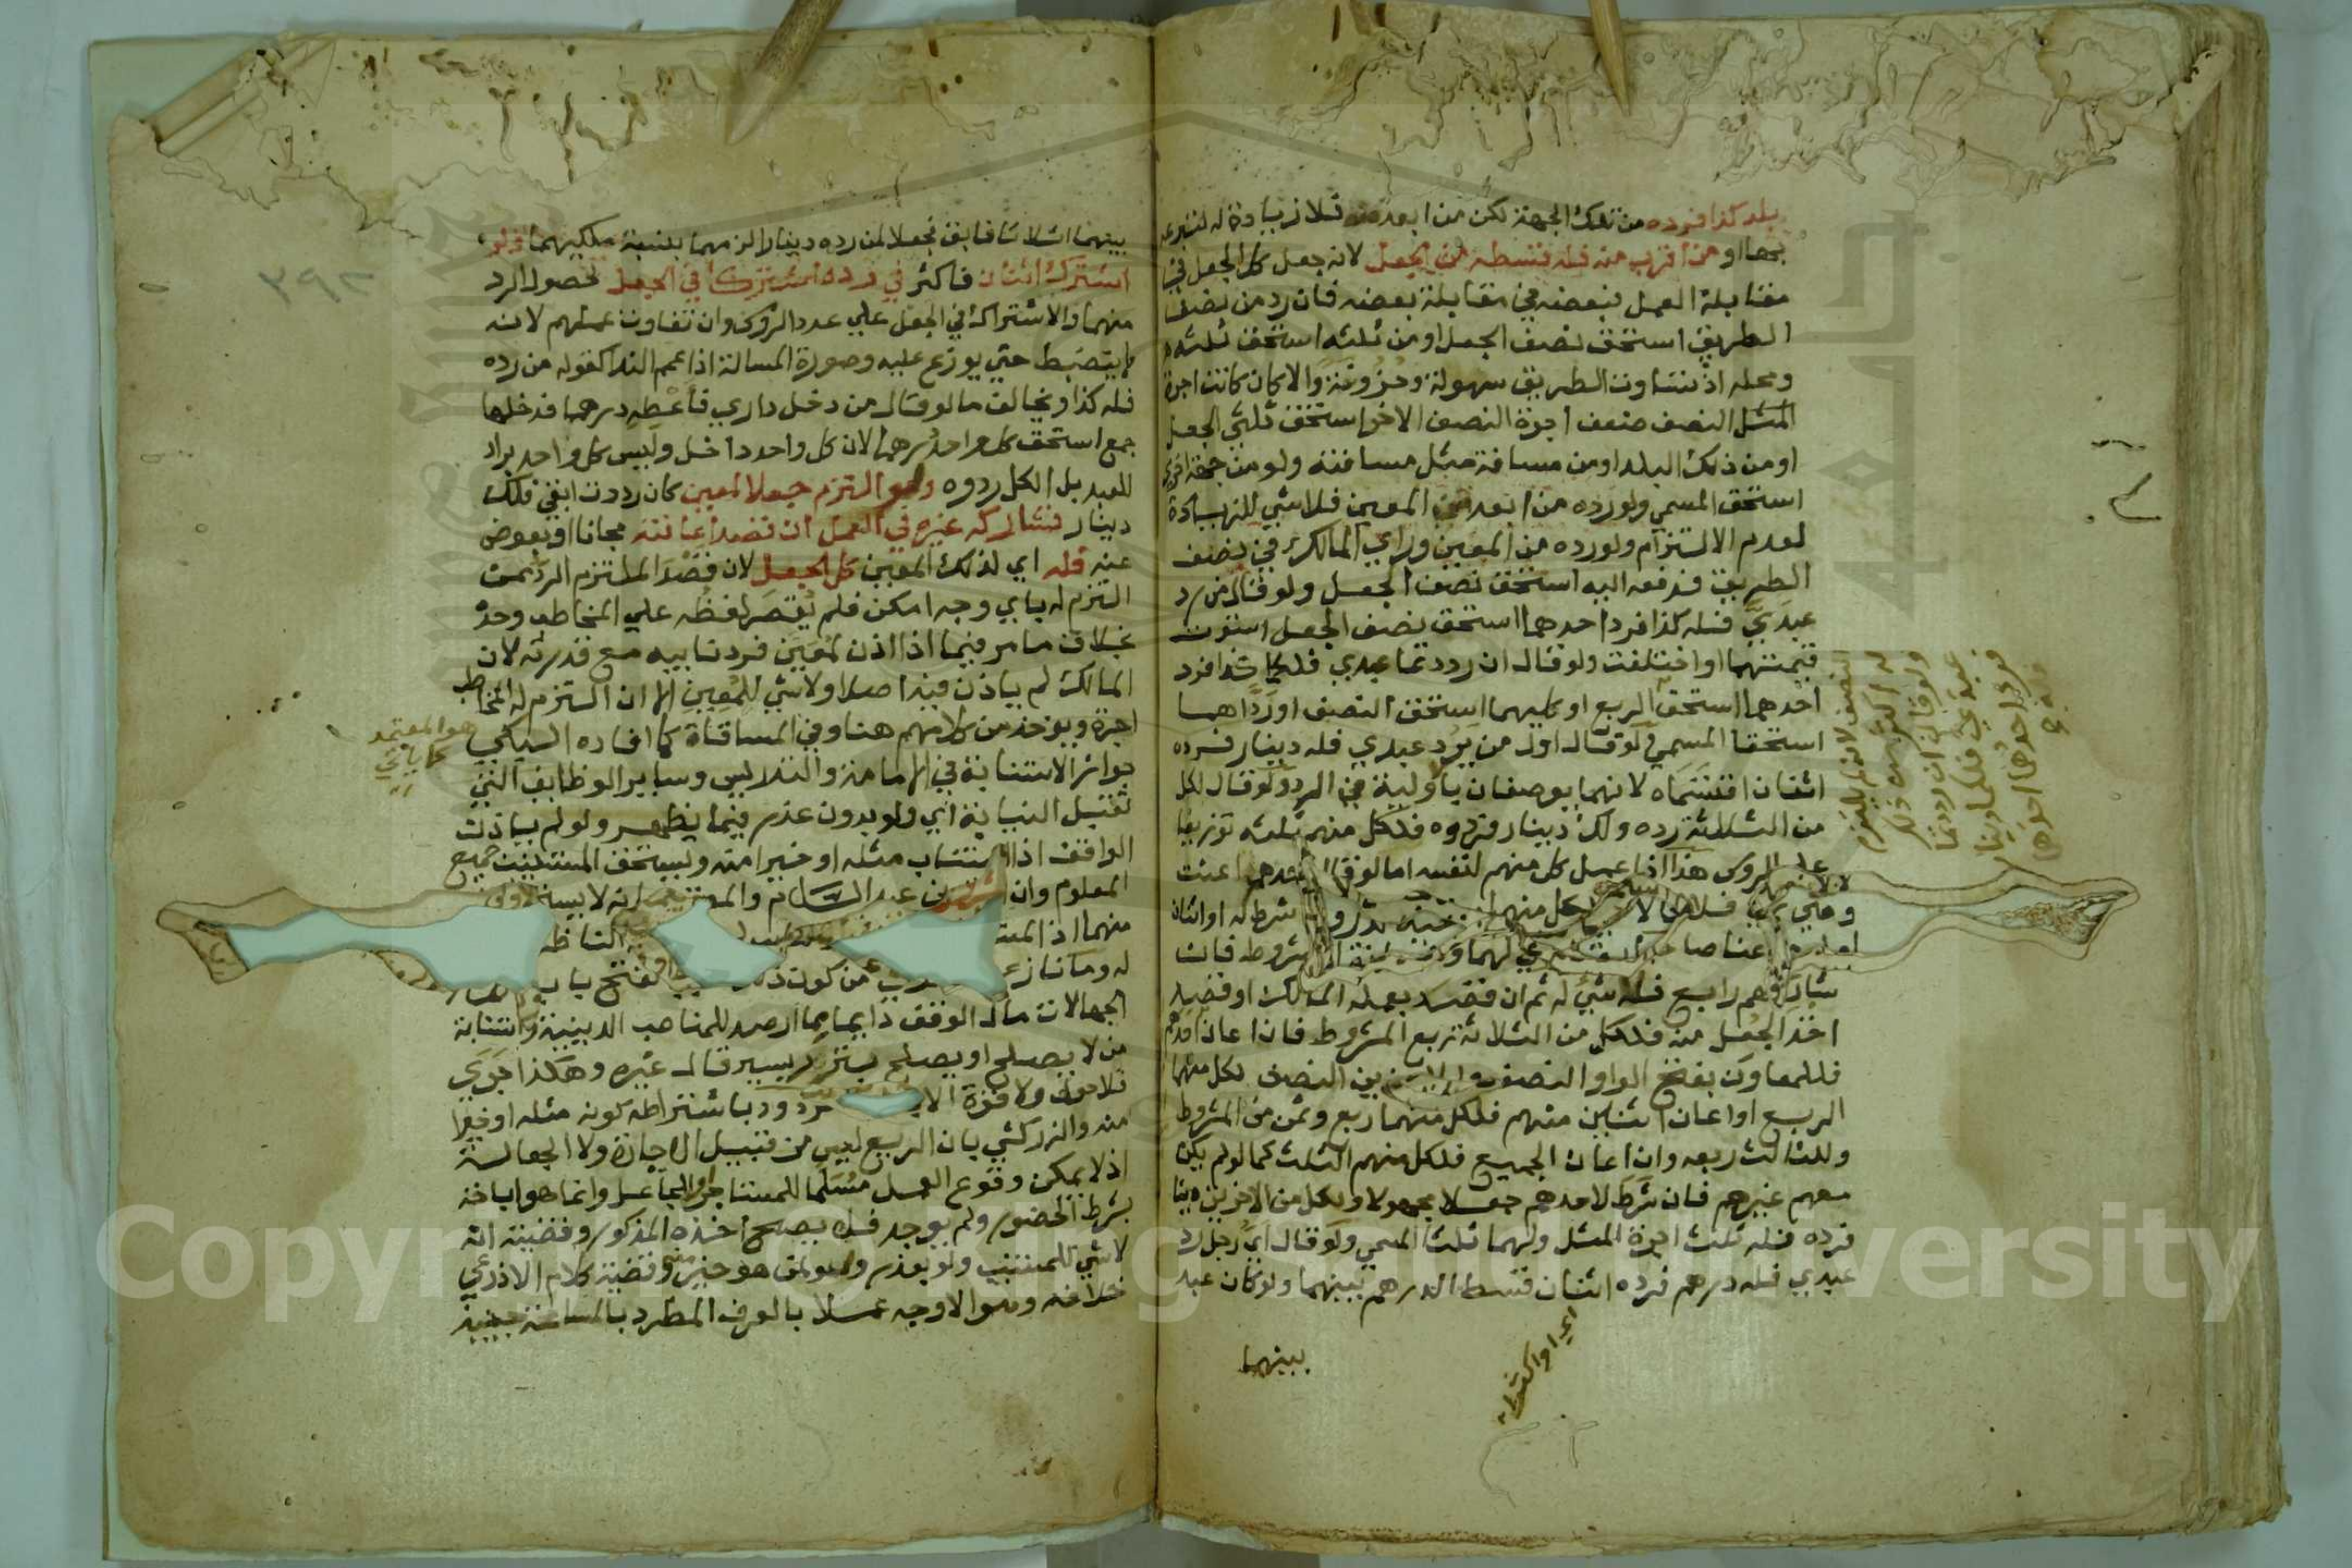 بلد كذا فرده من تلك الجهة لكن من ابعد منه فلا زيادة له لتبرعه
بها او من اقرب منه فله قسطه من الجعل لانه جعل كل الجعل في
مقابلة العمل فبعضه في مقابلة بعضه فان رد من نصف
الطريق استحق نصف الجعل او من ثلثه استحق ثلثه
ومحله اذ تساوت الطريق سهولة وحزونة والا كان كانت اجرة
المثل النصف ضعف اجرة النصف الاخر استحق ثلثي الجعل
او من ذلك البلد او من مسافة مثل مسافته ولو من جهة اخرى
استحق المسمى ولو رده من ابعد من المعين فلا شي للزيادة
لعدم الالتزام ولو رده من المعين وراي المالك في نصف
الطريق فدفعه اليه استحق نصف الجعل ولو قال من رد
عبدي فله كذا فرد احدهما استحق نصف الجعل استوت
قيمتهما او اختلفت ولو قال ان رددتما عبدي فلكما كذا فرد
احدهما استحق الربع او كليهما استحق النصف او ردّاهما
استحقا المسمى ولو قال اول من يرد عبدي فله دينار فرده
اثنان اقتسماه لانهما يوصفان باولية في الرد ولو قال لكل
من الثلاثة رده ولك دينار فردوه فلكل منهم ثلثه توزيعا
على الروس هذا اذا عمل كل منهم لنفسه اما لو قال احدهم اعنت
شاركهم رابع فلا شي له ثم ان قصد بعمله المالك او قصد
اخذ الجعل منه فلكل من الثلاثة ربع المشروط فان اعان احدهم
فللمعاون بفتح الواو النصف وللاخرين النصف لكل منهما
الربع او اعان اثنين منهم فلكل منهما ربع وثمن من المشروط
وللثالث ربعه وان اعان الجميع فلكل منهم الثلث كما لو لم يكن
معهم غيرهم فان شرط لاحدهم جعلا مجهولا ولكل من الاخرين دينا
فرده فله ثلث اجرة المثل ولهما ثلثا المسمى ولو قال اي رجل رد
عبدي فله درهم فرده اثنان قسط الدرهم بينهما ولو كان عبد
بينهما
اي او اكثر
النصف لانه لم يلتزم
له اكثر من ذلك
ولو قال ان رددتما
عبدي فلكما دينار
بينهما اثلاثا فابق فجعلا لمن رده دينارا لزمهما بنسبة ملكيهما ولو
اشترك اثنان فاكثر في رده اشتركا في الجعل لحصول الرد
منهما والاشتراك في الجعل على عدد الروس وان تفاوت عملهم لانه
لا ينضبط حتى يوزع عليه وصورة المسالة اذا عمم الندا كقوله من رده
فله كذا ويخالف ما لو قال من دخل داري فأعطه درهما فدخلها
جمع استحق كل واحد درهما لان كل واحد داخل وليس كل واحد براد
للعبد بل الكل ردوه ولو التزم جعلا لمعين كان رددت ابقي فلك
دينار فشاركه غيره في العمل ان قصد اعانته مجانا او بعوض
عنه فله اي لذلك المعين كل الجعل لان قصد الملتزم الرد ممن
التزم له باي وجه امكن فلم يقصر لفظه على المخاطب وحده
بخلاف ما مر فيما اذا اذن لمعين فرد نايبه مع قدرته لان
المالك لم ياذن فيه اصلا ولا شي للمعين الا ان التزم له المخاطب
اجرة ويوخذ من كلامهم هنا وفي المساقاة كما افاده السبكي
جواز الاستنابة في الامامة والتدريس وساير الوظايف التي
تقبل النيابة اي ولو بدون عذر فيما يظهر ولو لم ياذن
الواقف اذا استناب مثله او خيرا منه ويستحق المستنيب جميع
المعلوم وان افتى ابن عبد السلام والمصنف بانه لا يستحقه
له وما نازع من كون ذلك لفتح باب
الجهالات مال الوقف دايما مما ارصد للمناصب الدينية واستنابة
من لا يصلح او يصلح بنزر يسير قال غيره وهكذا جرى
فلا حول ولا قوة الا مردود باشتراطه كونه مثله او خيرا
منه والزركشي بان الريع ليس من قبيل الاجارة ولا الجعالة
اذ لا يمكن وقوع العمل مسلما للمستاجر او الجاعل وانما هو اباحة
بشرط الحضور ولم يوجد فلا يصح اخذه المذكور وقضيته انه
لا شي للمستنيب ولو بعذر ولو لمن هو خير منه وقضية كلام الاذرعي
خلافه وهو الاوجه عملا بالعرف المطرد بالمسامحة حينيذ
هو المعتمد
كما ياتي
٣٩٢
Copyright © King Saud University